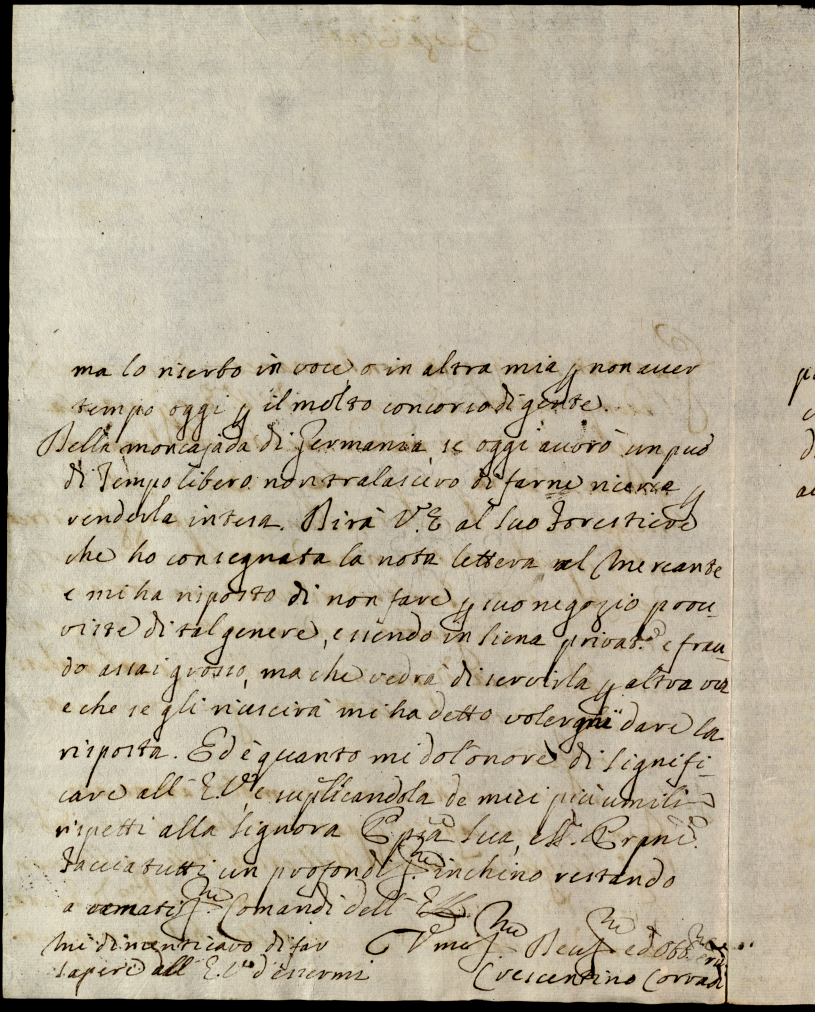 ma lo riserbo in voce, o in altra mia p non aver
tempo oggi p il molto concorso di gente.
Della moncajada di Germania, se oggi avorò un puo
di tempo libero non tralascievo di farne ricerca p
renderla intesa. Dirà V.E al suo Foresticre
che ho consegnata la nota lettera al Mercante
e mi ha risposto di non fare p suo negozio prou
viste di tal genere, essendo in Siena privat.e e frau
do assai grosso, ma che vedrà di servirla p altra via
e che se gli riuscirà mi ha detto volergni dare la
risposta. Ed è quanto mi do l'onore di signifi
care all' E.V. e suplicandola de miei più umili
rispetti alla Signora Sua, e
Faccia tutti un profondiss.mo inchino restando
a Comandi dell'
Mi dimenticavo di far
sapere all' E.V. d'essermi
Crescentino Corradi